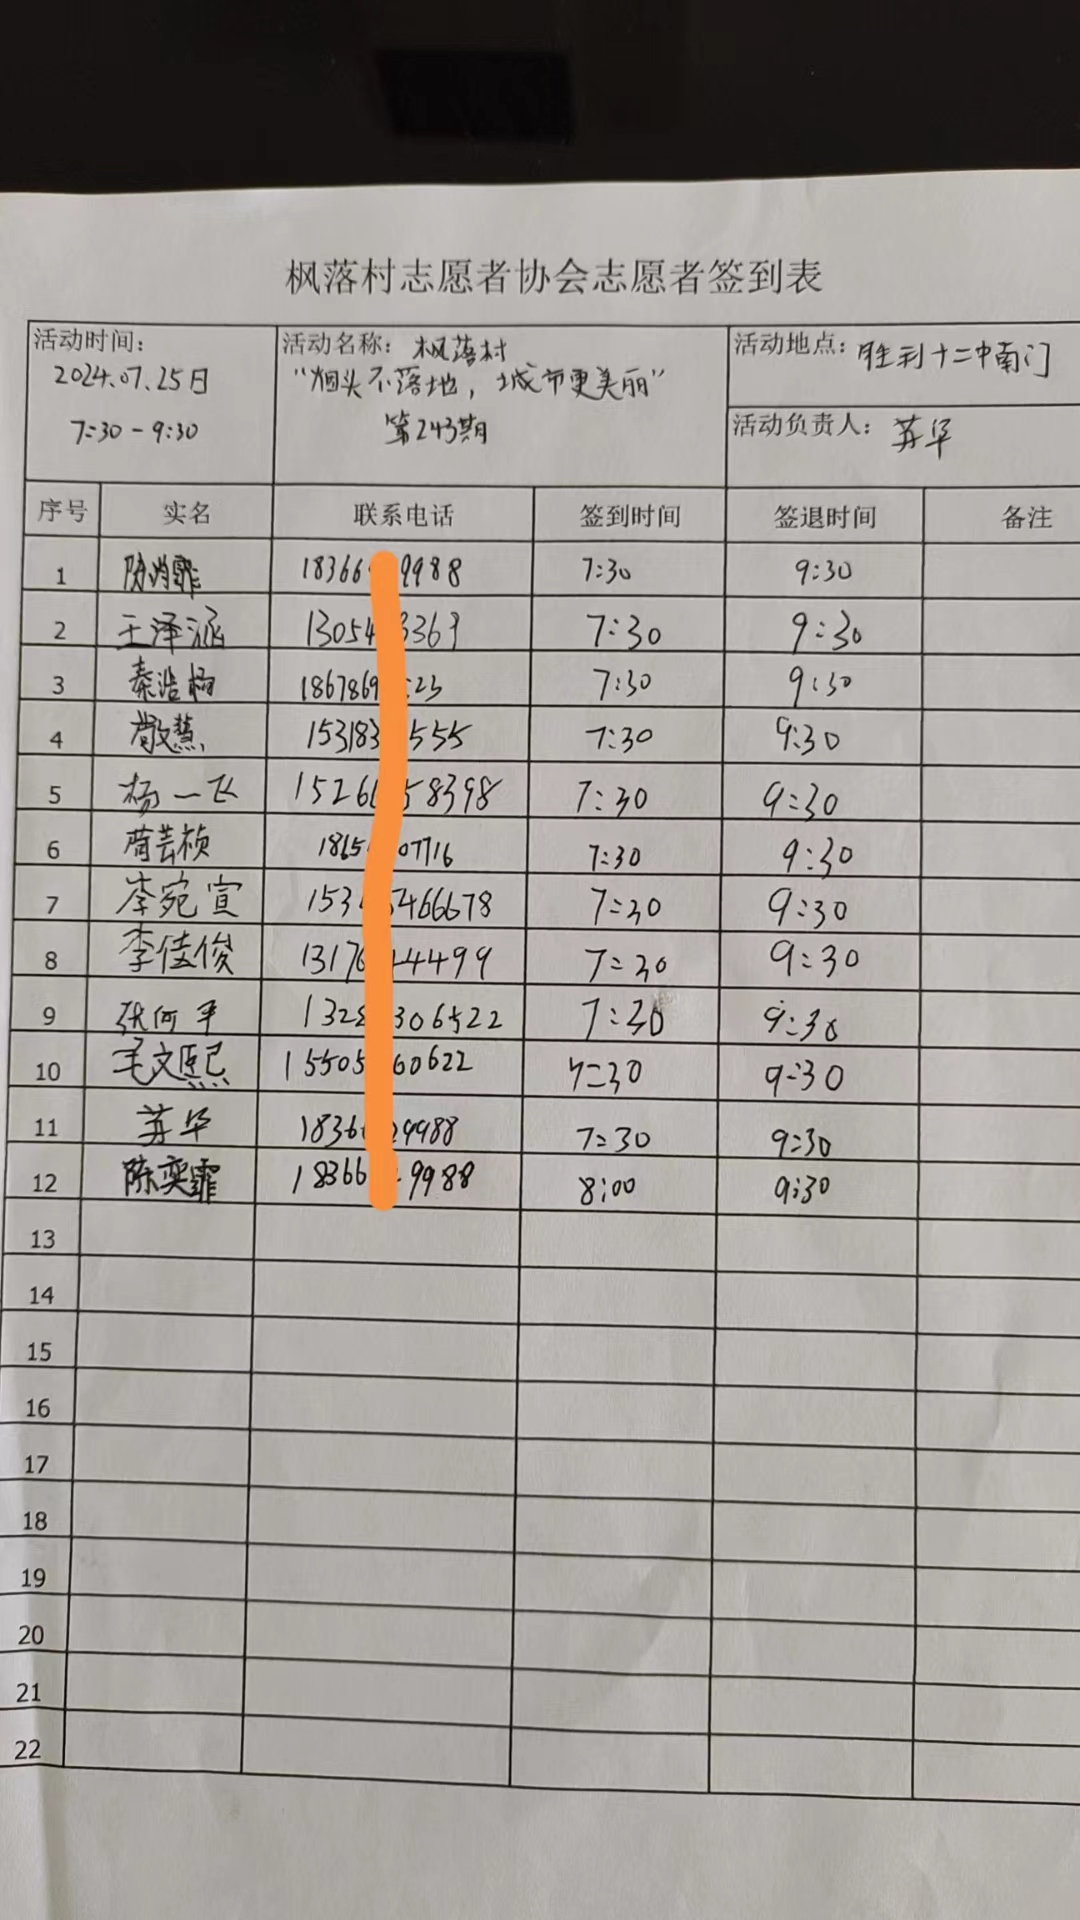 枫落村志愿者协会志愿者签到表
活动时间: 2024.07.25日 7:30-9:30
活动名称: 枫落村
"烟头不落地，城市更美丽"
第243期
活动地点: 胜利十二中南门
活动负责人: 苏华
序号 实名 联系电话 签到时间 签退时间 备注
1 陈 霏 18366 9988 7:30 9:30
2 王泽涵 1305 3369 7:30 9:30
3 秦浩杨 1867869 23 7:30 9:30
4 慧 153183 555 7:30 9:30
5 杨一飞 1526 58398 7:30 9:30
6 芸桢 1865 07716 7:30 9:30
7 李宛宣 153 466678 7:30 9:30
8 李佳俊 1317 4499 7:30 9:30
9 张何平 132 306522 7:30 9:30
10 毛文熙 15505 60622 7:30 9:30
11 苏华 1836 9988 7:30 9:30
12 陈奕霏 18366 9988 8:00 9:30
13
14
15
16
17
18
19
20
21
22